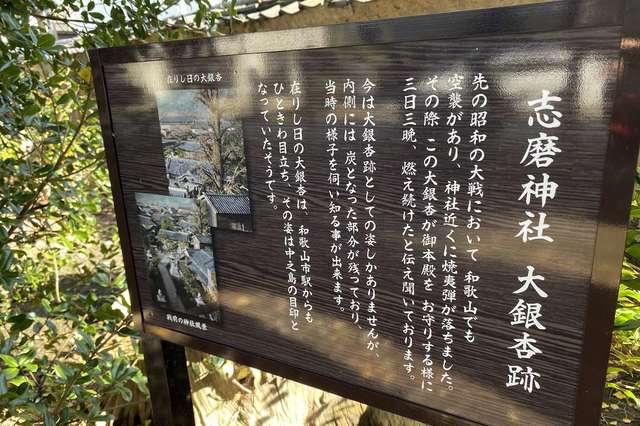 志磨神社 大銀杏跡
先の昭和の大戦において 和歌山でも
空襲があり、神社近くに焼夷弾が落ちました。
その際、この大銀杏が御本殿を お守りする様に
三日三晩、燃え続けたと伝え聞いております。
今は大銀杏跡としての姿しかありませんが、
内側には 炭となった部分が残っており、
当時の様子を伺い知る事が出来ます。
在りし日の大銀杏は、和歌山市駅からも
ひときわ目立ち、その姿は中之島の目印と
なっていたそうです。
在りし日の大銀杏
戦前の神社風景